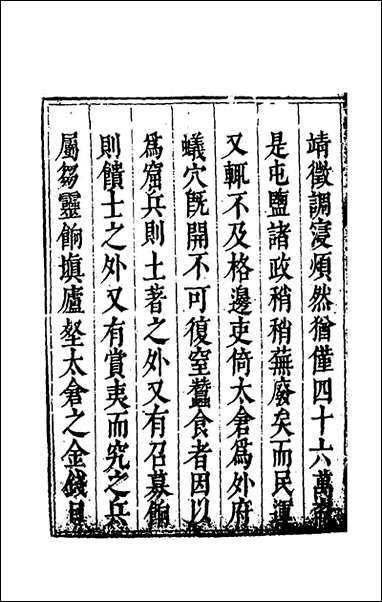 靖徵調寖煩然猶僅四十六萬
是屯鹽諸政稍稍蕪廢矣而民運
又輒不及格邊吏倚太倉爲外府
蟻穴既開不可復窒蠶食者因以
爲窟兵則土著之外又有召募餉
則饋士之外又有賞夷而究之兵
屬芻靈餉塡廬壑太倉之金錢